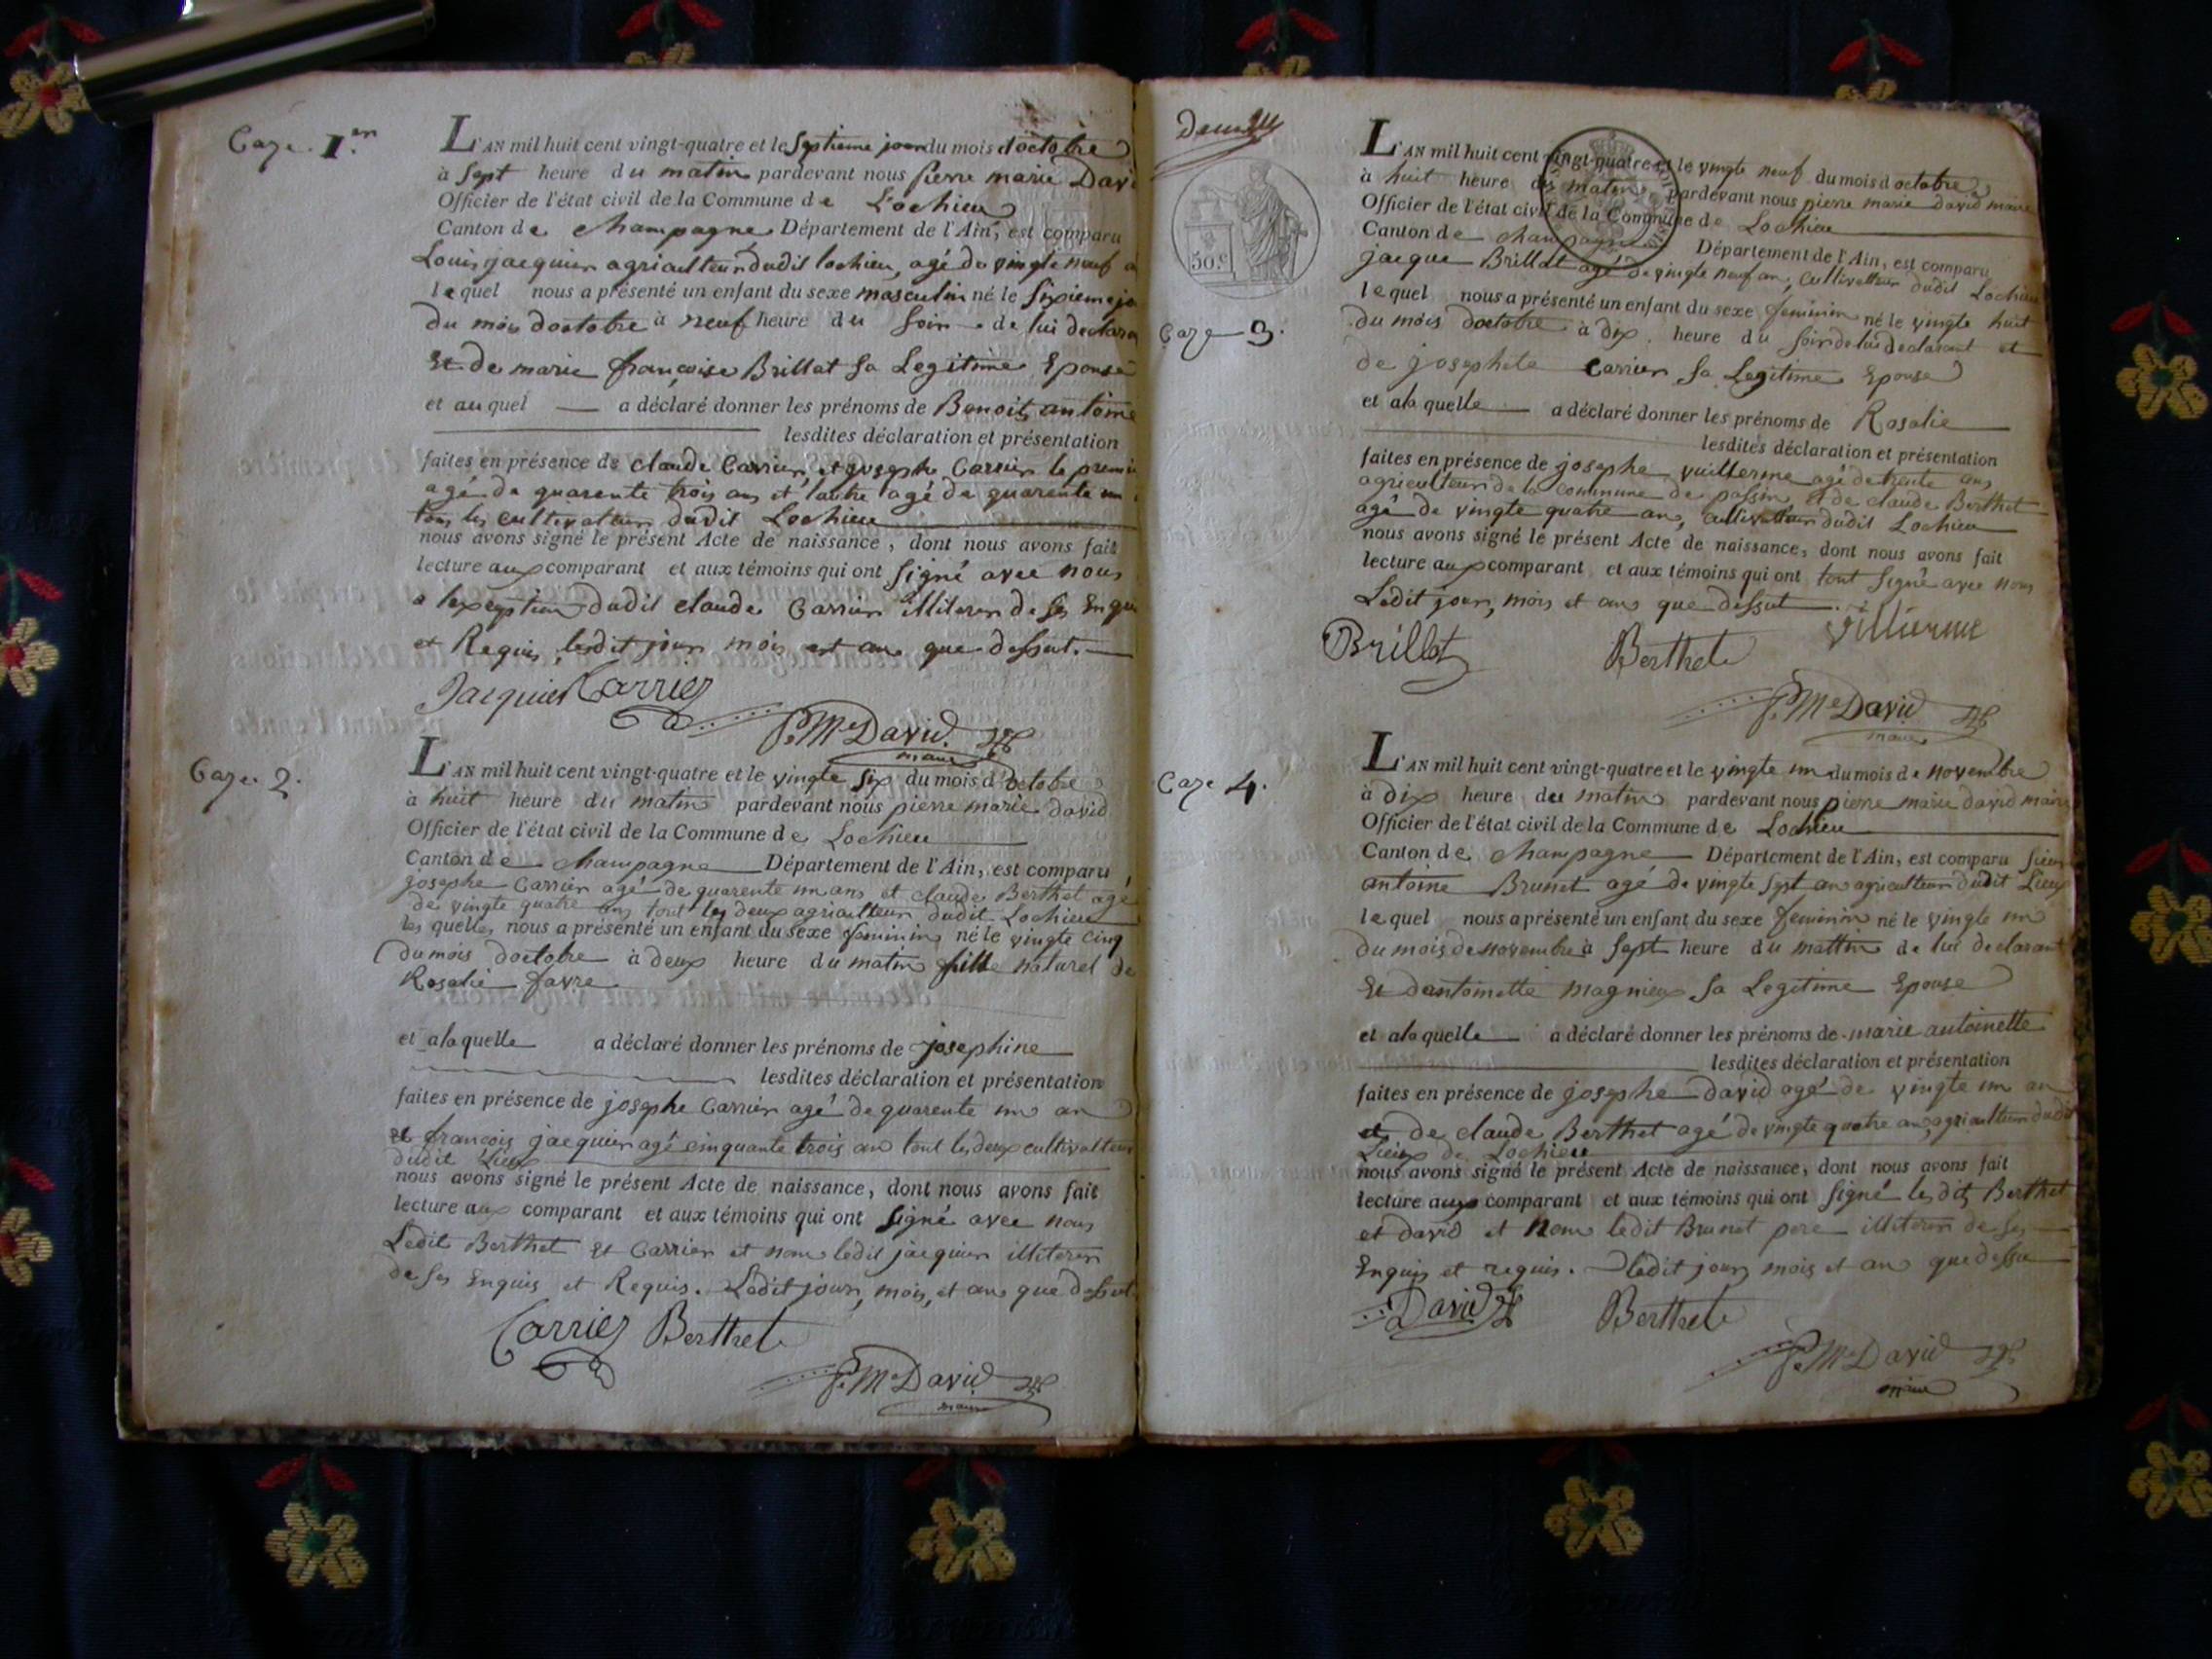 Caze. 1.er
L'AN mil huit cent vingt-quatre et le Septieme jour du mois d'octobre
à Sept heure du matin pardevant nous pierre marie Davi
Officier de l'état civil de la Commune de Lochieu
Canton de champagne Département de l'Ain, est comparu
Louis jacquier agriculteur dudit lochieu, agé de vingte neuf a
lequel nous a présenté un enfant du sexe masculin né le Sixieme jo
du mois doctobre à neuf heure du Soir de lui declara
Et de marie françoise Brillat Sa Legitime Epouse
et auquel a déclaré donner les prénoms de Benoit antoine
lesdites déclaration et présentation
faites en présence de claude Carrier et josephe Carrier le premie
agé de quarente trois ans et lautre agé de quarente un
tous les cultivatteur dudit Lochieu
nous avons signé le présent Acte de naissance, dont nous avons fait
lecture aux comparant et aux témoins qui ont Signé avec nous
a lexeption dudit claude Carrier illiteren de Ses Enqui
et Requis, ledit jour mois et an que dessut.
Jacquier Carrier
P. Me David
maire
Caze 2.
L'AN mil huit cent vingt-quatre et le vingte six du mois d'octobre
à huit heure du matin pardevant nous pierre marie david
Officier de l'état civil de la Commune de Lochieu
Canton de champagne Département de l'Ain, est comparu
josephe Carrier agé de quarente un ans et claude Berthet agé
de vingte quatre ans tout les deux agriculteur dudit Lochieu
les quelles nous a présenté un enfant du sexe feminin né le vingte cinq
du mois doctobre à deux heure du matin fille naturel de
Rosalie favre
et a laquelle a déclaré donner les prénoms de josephine
lesdites déclaration et présentation
faites en présence de josephe Carrier agé de quarente un an
et françois jacquier agé cinquante trois an tout les deux cultivatteur
dudit Lieux
nous avons signé le présent Acte de naissance, dont nous avons fait
lecture aux comparant et aux témoins qui ont Signé avec nous
Ledit Berthet et Carrier et nom ledit jacquier illiteren
de Ses Enquis et Requis. Ledit jour, mois, et an que dessut.
Carrier Berthet
P. Me David
maire
50.c
Caze 3.
L'AN mil huit cent vingt-quatre et le vingte neuf du mois d octobre
à huit heure du matin pardevant nous pierre marie david maire
Officier de l'état civil de la Commune de Lochieu
Canton de champagne Département de l'Ain, est comparu
jacque Brillat agé de vingte neuf an, cultivatteur dudit Lochieu
lequel nous a présenté un enfant du sexe feminin né le vingte huit
du mois doctobre à dix heure du Soir de lui declarant et
de josephete Carrier Sa Legitime Epouse
et a la quelle a déclaré donner les prénoms de Rosalie
lesdites déclaration et présentation
faites en présence de josephe vuillerme agé de trente ans
agriculteur de la commune de passin et de claude Berthet
agé de vingte quatre an, cultivatteur dudit Lochieu
nous avons signé le présent Acte de naissance, dont nous avons fait
lecture aux comparant et aux témoins qui ont tout Signé avec nous
Ledit jour, mois et an que dessut
Brillat Berthet
P. Me David
maire
Caze 4.
L'AN mil huit cent vingt-quatre et le vingte un du mois de novembre
à dix heure du matin pardevant nous pierre marie david maire
Officier de l'état civil de la Commune de Lochieu
Canton de champagne Département de l'Ain, est comparu Sieur
antoine Brunet agé de vingte Sept an agriculteur dudit Lieux
lequel nous a présenté un enfant du sexe feminin né le vingte un
du mois de novembre à Sept heure du mattin de lui declarant
Et dantoinette magnieux Sa Legitime Epouse
et a la quelle a déclaré donner les prénoms de marie antoinette
lesdites déclaration et présentation
faites en présence de josephe david agé de vingte un an
et de claude Berthet agé de vingte quatre an, agriculteur dudit
Lieux de Lochieu
nous avons signé le présent Acte de naissance, dont nous avons fait
lecture aux comparant et aux témoins qui ont Signé les dits Berthet
et david et nom ledit Brunet pere illiteren de Ses
Enquis et requis. Ledit jour, mois et an que dessu
David Berthet
P. Me David
maire